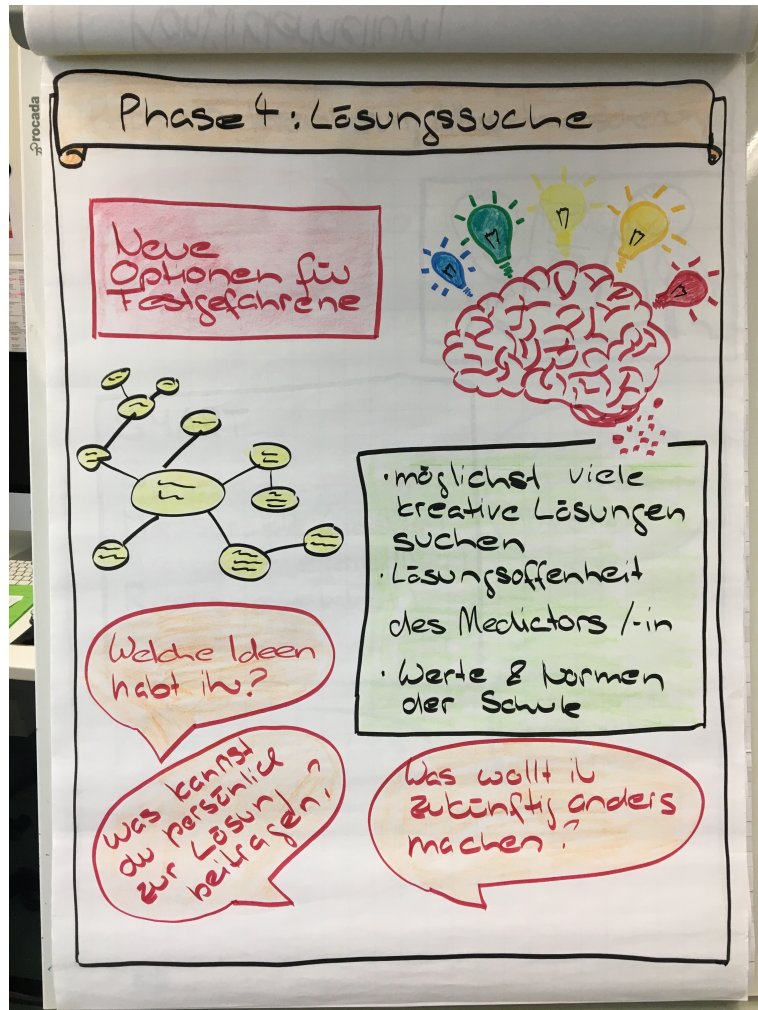 rocada
Phase 4: Lösungssuche
Neue
Optionen für
Festgefahrene
• möglichst viele
kreative Lösungen
suchen
• Lösungsoffenheit
des Mediators /-in
• Werte & Normen
der Schule
Welche Ideen
habt ihr?
Was kannst
du persönlich
zur Lösung
beitragen?
Was wollt ih
zukünftig anders
machen?